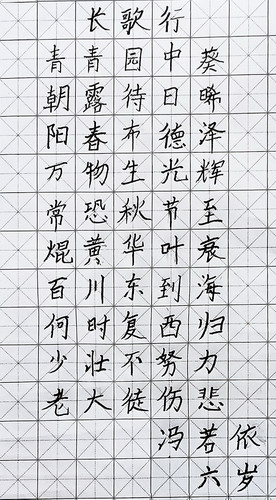 长歌行
青青园中葵
朝露待日晞
阳春布德泽
万物生光辉
常恐秋节至
焜黄华叶衰
百川东到海
何时复西归
少壮不努力
老大徒伤悲
冯若依
六岁